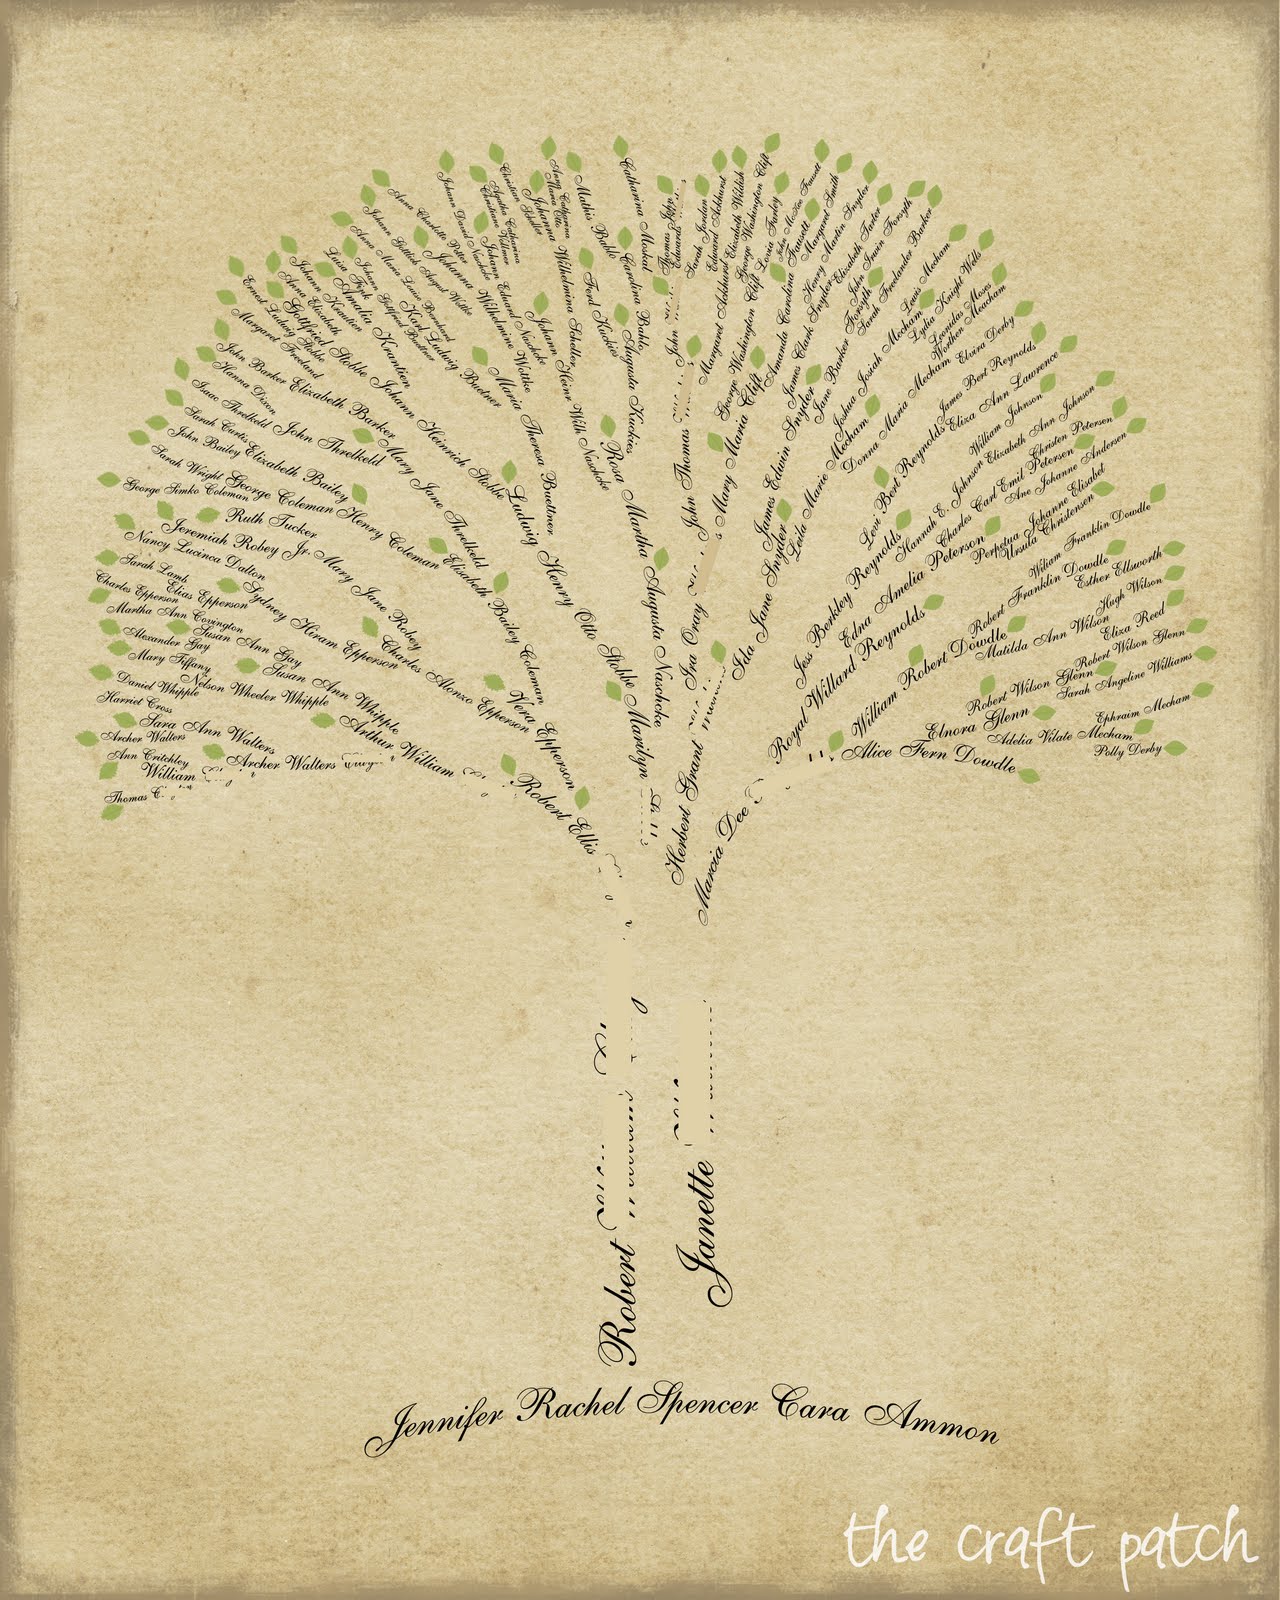 Thomas
William
Ann Critchley
Archer Walters
Archer Walters
Sara Ann Walters
Harriet Cross
Daniel Whipple
Nelson Wheeler Whipple
Arthur William
Mary Tiffany
Alexander Gay
Susan Ann Gay
Susan Ann Whipple
Martha Ann Covington
Charles Epperson
Elias Epperson
Sarah Lamb
Sydney Hiram Epperson
Charles Alonzo Epperson
Nancy Lucinca Dalton
Jeremiah Robey Jr.
Mary Jane Robey
Ruth Tucker
Vera Epperson
Robert Ellis
George Simko Coleman
George Coleman
Sarah Wright
Henry Coleman
John Bailey
Elizabeth Bailey
Sarah Curtis
Elisabeth Bailey Coleman
Isaac Threlkeld
John Threlkeld
Hanna Dixon
Mary Jane Threlkeld
John Barker
Elizabeth Barker
Margaret Freeland
Ernst Ludwig Stobbe
Gottfried Stobbe
Anna Elizabeth
Johann Heinrich Stobbe
Johann Krantien
Amalia Krantien
Luisa Fryk
Ludwig Henry Otto Stobbe
Johann Gottfried Buettner
Karl Ludwig Buettner
Anna Maria Louise Bernhard
Maria Theresa Buettner
Johann Gottlieb August Wottke
Johanna Wilhelmine Wottke
Anna Charlotte Potter
Johann David Naschcke
Johann Eduard Naschcke
Christiane Willmer
Agatha Catharina
Johann Heinr With Naschcke
Christian Scheller
Johanna Wilhelmina Scheller
Anna Catharina
Maria Otto
Mathis Bahlo
Ferd Kuckies
Augusta Kuckies
Carolina Bahlo
Catharina Moskal
Rosa Martha Augusta Naschcke
Marilyn
Thomas John
Edward
John
John Thomas
Ira Cray
Herbert Grant
Sarah Jordan
Edward Ackhurst
Margaret Ackhurst
Elizabeth Wildish
George Washington Clift
George Washington Clift
Mary Maria Clift
Lovia Farley
John McKee Fausett
Amanda Carolina Fausett
Margaret Smith
Henry Martin Snyder
James Clark Snyder
Elizabeth Tarter
James Edwin Snyder
John Irwin Forsyth
Jane Barker Forsyth
Sarah Freelander Barker
Ida Jane Snyder
Lewis Mecham
Joshua Josiah Mecham
Lydia Knight Wells
Leila Marie Mecham
Leonidas Moses
Worthen Mecham
Donna Maria Mecham
Elvira Derby
James Bert Reynolds
Levi Bert Reynolds
Eliza Ann Lawrence
Jess Berkley Reynolds
William Johnson
Hannah E. Johnson
Elizabeth Ann Johnson
Christen Petersen
Charles Carl Emil Petersen
Ane Johanne Andersen
Edna Amelia Peterson
Perpetua Johanne Elisabet
Ursula Christensen
Royal Willard Reynolds
William Franklin Dowdle
Robert Franklin Dowdle
Esther Ellsworth
William Robert Dowdle
Hugh Wilson
Matilda Ann Wilson
Eliza Reed
Robert Wilson Glenn
Robert Wilson Glenn
Sarah Angeline Williams
Elnora Glenn
Ephraim Mecham
Adelia Vilate Mecham
Polly Derby
Alice Fern Dowdle
Marcia Dee
Robert
Janette
Jennifer Rachel Spencer Cara Ammon
the craft patch